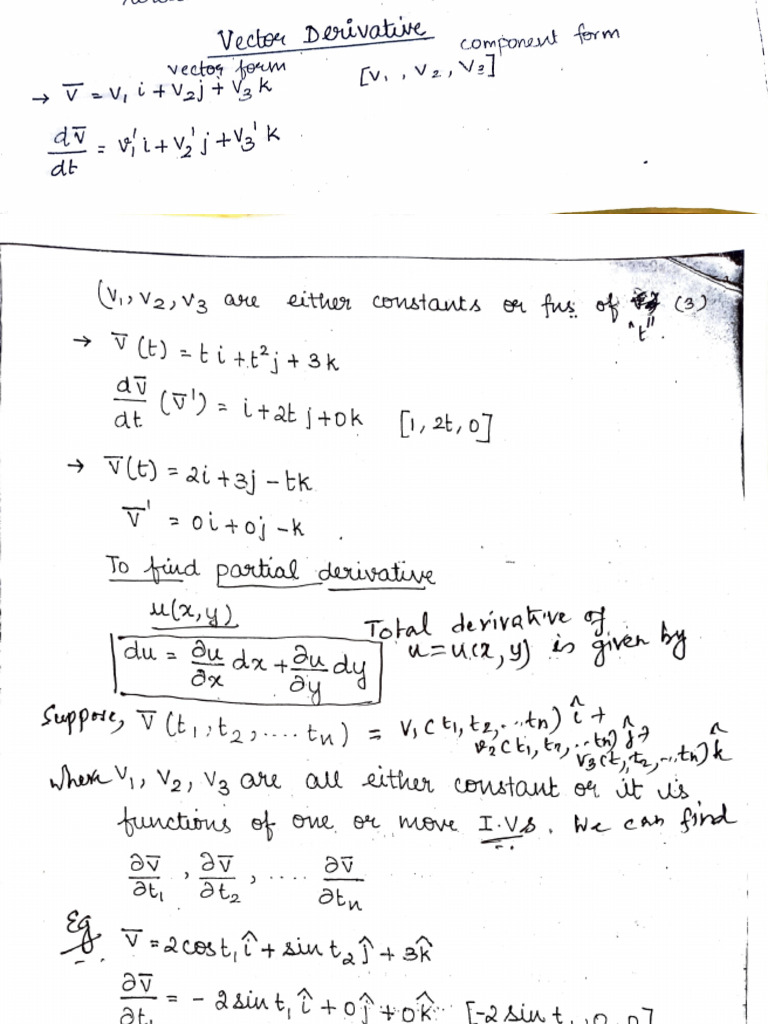 Vector Derivative
vector form component form
→ V̅ = v₁ i + v₂ j + v₃ k [v₁, v₂, v₃]
dv̅/dt = v₁' i + v₂' j + v₃' k
(v₁, v₂, v₃ are either constants or fns. of (3)
"t".
→ V̅(t) = t i + t² j + 3k
dv̅/dt (v̅') = i + 2t j + 0k [1, 2t, 0]
→ V̅(t) = 2i + 3j - tk
V̅' = 0i + 0j - k .
To find partial derivative
u(x,y) Total derivative of
du = ∂u/∂x dx + ∂u/∂y dy u = u(x, y) is given by
Suppose, V̅(t₁, t₂, .... tₙ) = v₁(t₁, t₂, ... tₙ) î +
v₂(t₁, t₂, ... tₙ) ĵ +
v₃(t₁, t₂, ... tₙ) k̂
where v₁, v₂, v₃ are all either constant or it is
functions of one or more I.Vs. We can find
∂v̅/∂t₁ , ∂v̅/∂t₂ , .... ∂v̅/∂tₙ
Eg V̅ = 2cost₁ î + sin t₂ ĵ + 3k̂
∂v̅/∂t₁ = - 2sint₁ î + 0ĵ + 0k̂ [-2 sin t₁, 0, 0]